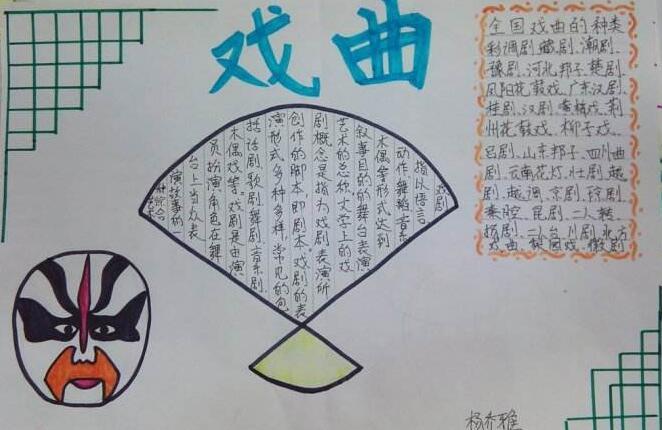 戏曲
戏剧
指以语言
动作舞蹈音乐
木偶等形式达到
叙事目的的舞台表演
艺术的总称文学上的戏
剧概念是指为戏剧表演所
创作的脚本即剧本戏剧的表
演形式多种多样常见的包
括话剧歌剧舞剧音乐剧
木偶戏等戏剧是由演
员扮演角色在舞
台上当众表
演故事的一
种综合
全国戏曲的种类
彩调剧、藏剧、潮剧、
豫剧、河北邦子、楚剧、
凤阳花鼓戏、广东汉剧、
桂剧、汉剧、戏、荆
州花鼓戏、柳子戏、
吕剧、山东邦子、四川曲
剧、云南花灯、壮剧、越
剧、越调、京剧、
秦腔、昆剧、二人转、
扬剧、二人台、川剧、北方
戏曲、梨园戏、徽剧
杨乔雅